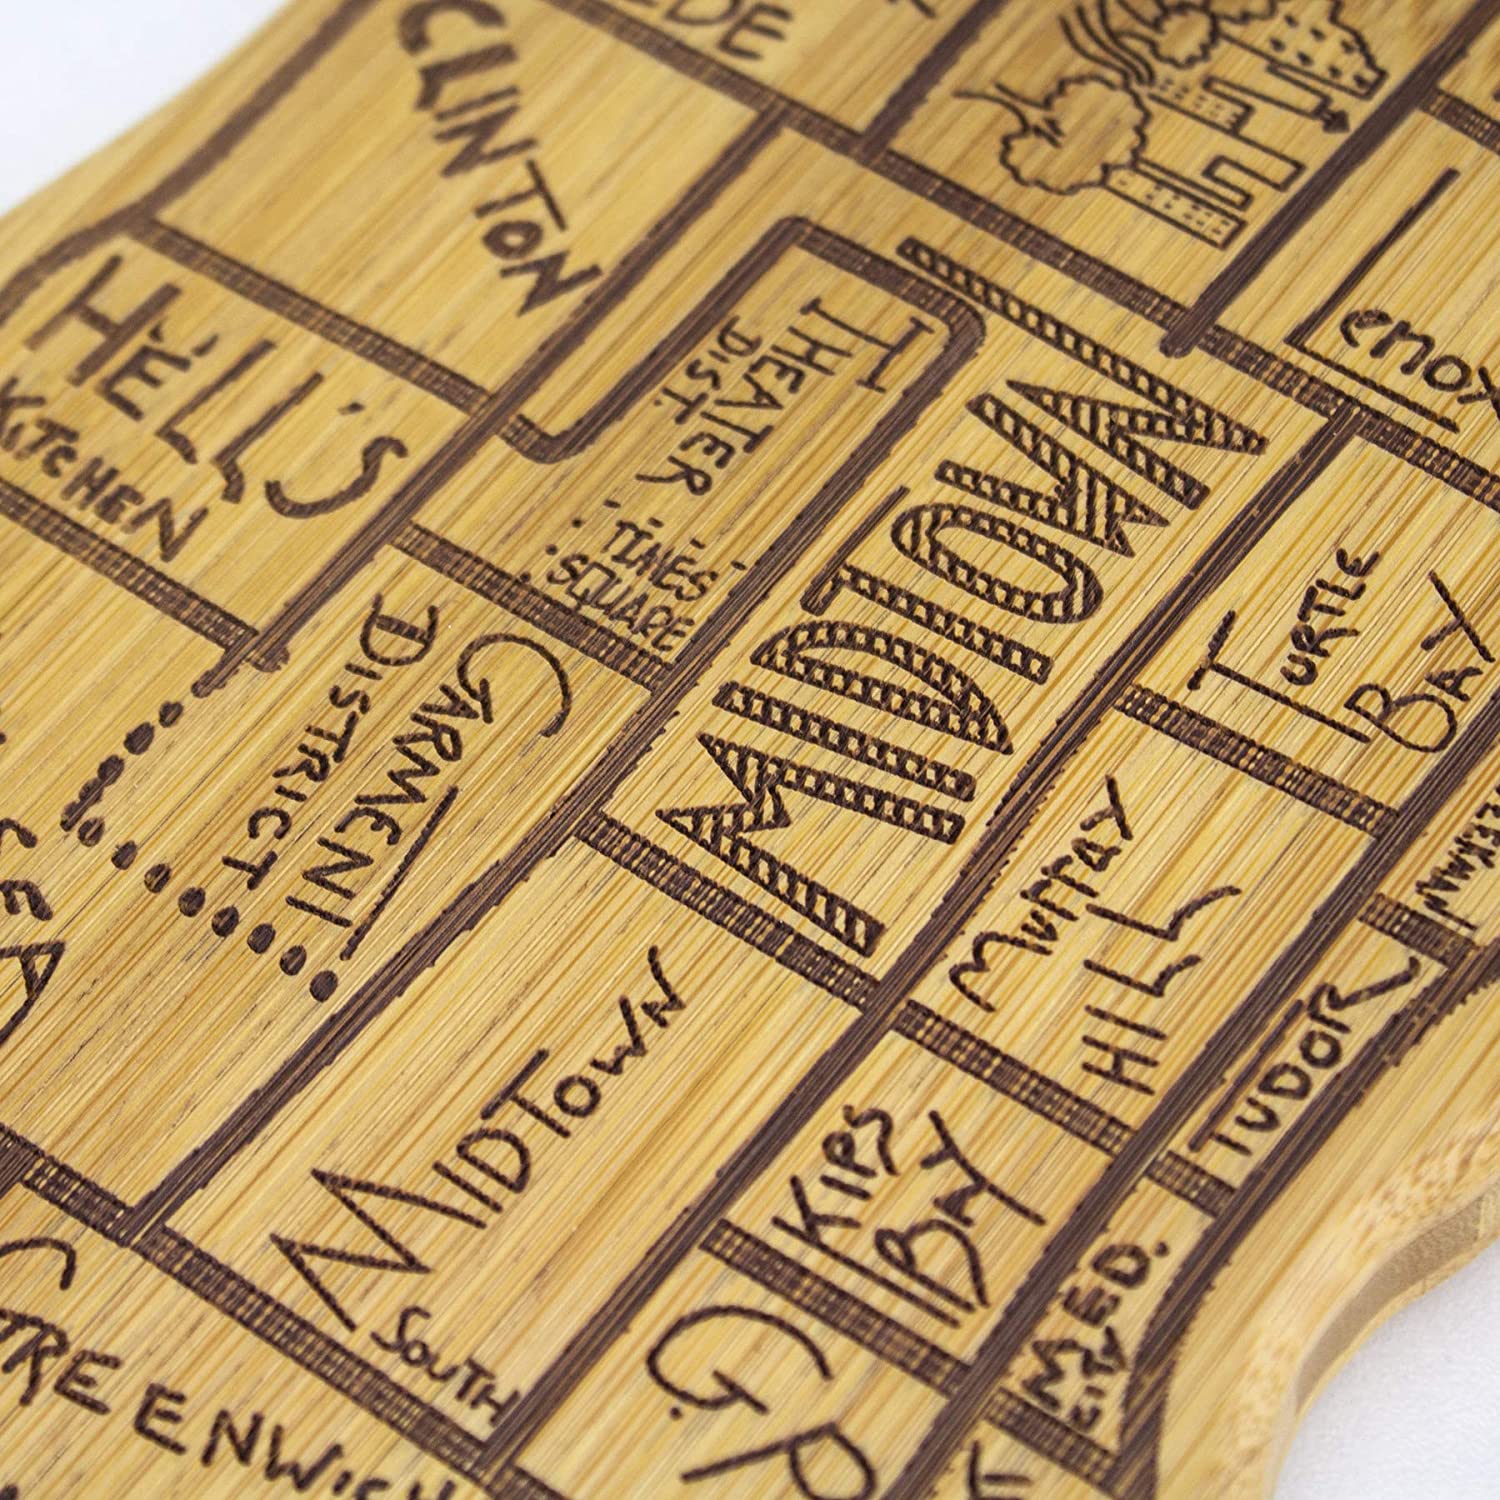 CLINTON
HELL'S
KITCHEN
THEATER
DIST.
TIMES
SQUARE
MIDTOWN
LENOX
TURTLE
BAY
GARMENT
DISTRICT
MURRAY
HILL
TUDOR
MIDTOWN
SOUTH
KIPS
BAY
MED.
GREENWICH